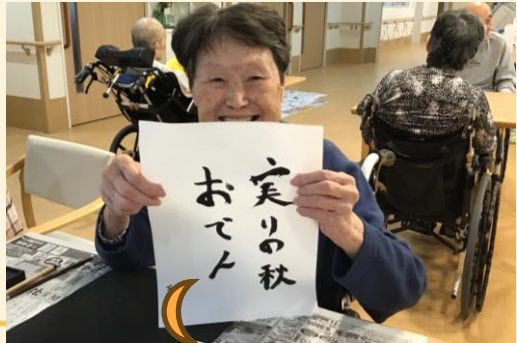 実りの秋
おでん